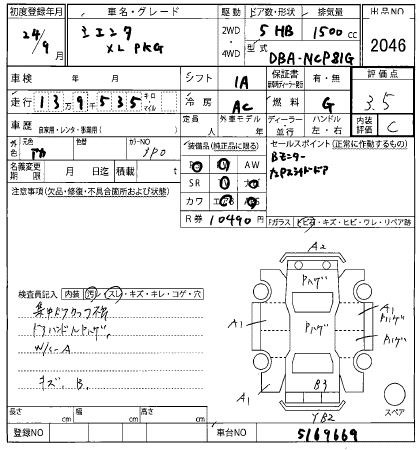 初度登録年月 車名・グレード 駆動 ドア数・形状 排気量 出品NO
24/9月 シエンタ XL PKG 2WD 4WD 5 HB 1500 cc 2046
型式 DBA-NCP81G
車検 年 月 シフト IA 保証書 有・無 評価点
走行 13万9千535 キロ・マイル 冷房 AC 燃料 G 3.5
車歴 自家用・レンタ・事業用( ) 定員 人 外車モデル 年 ディーラー 並行 ハンドル 左・右 内装評価 C
元色 色替 カラーNO
3P0
装備品(純正品に限る) セールスポイント(正常に作動するもの)
Bモニター
AW
名義変更期限 月 日迄 積載 t
SR
注意事項(欠品・修復・不具合箇所および状態)
カワ
R券 10490円
Fガラス トビ石・キズ・ヒビ・ワレ・リペア跡
A2
Pハゲ
検査員記入 内装 汚レ・スレ・キズ・キレ・コゲ・穴
A1
Pハゲ
A1
Pハゲ
ドアハンドルPハゲ
W/C-A
キズ.B.
B3
A1
YB2
スペア
長さ cm 幅 cm 高さ cm
登録NO 車台NO 5169669